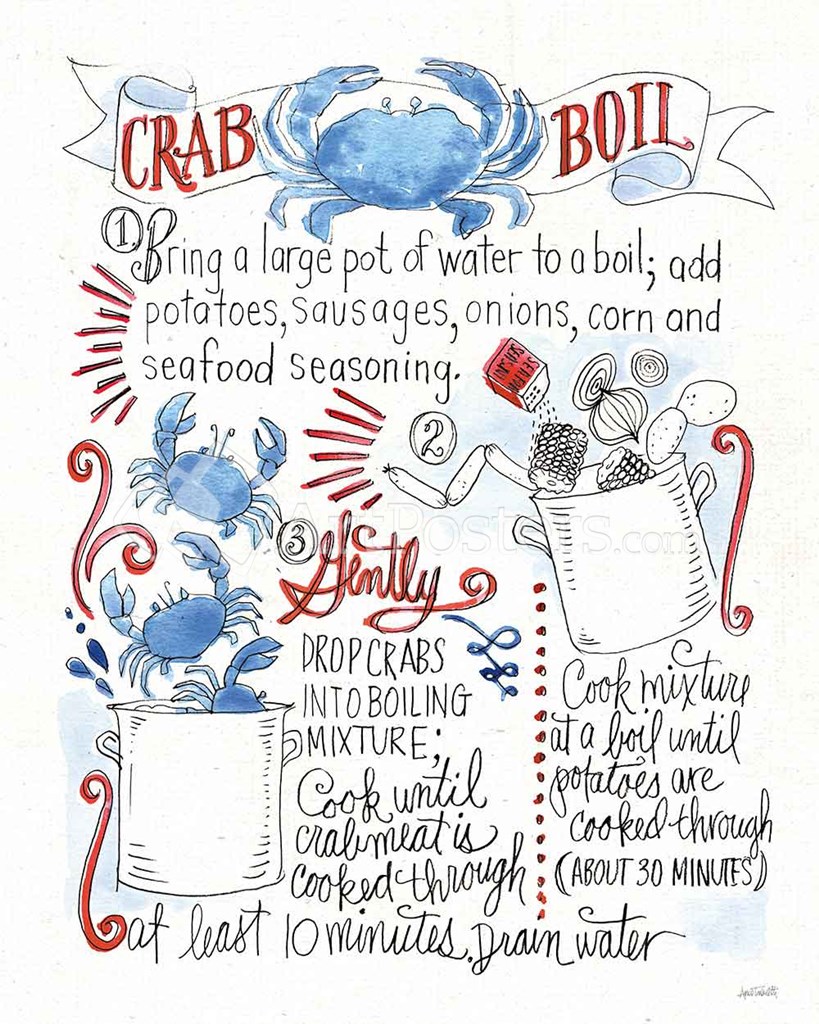 CRAB BOIL
1 Bring a large pot of water to a boil; add
potatoes, sausages, onions, corn and
seafood seasoning.
2
Cook mixture
at a boil until
potatoes are
cooked through
(ABOUT 30 MINUTES)
3 Gently
DROP CRABS
INTO BOILING
MIXTURE;
Cook until
crabmeat is
cooked through
at least 10 minutes. Drain water
ArtPosters.com